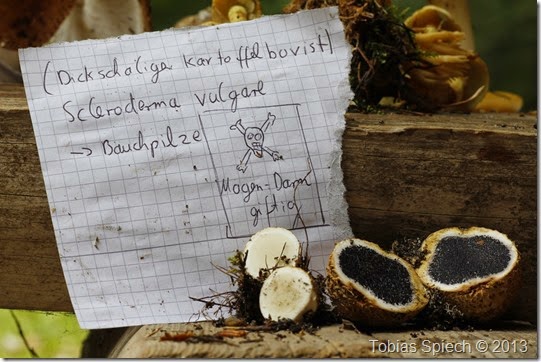 (Dickschalige Kartoffelbovist)
Scleroderma vulgare
→ Bauchpilze
Magen-Darm
giftig
Tobias Spiech © 2013